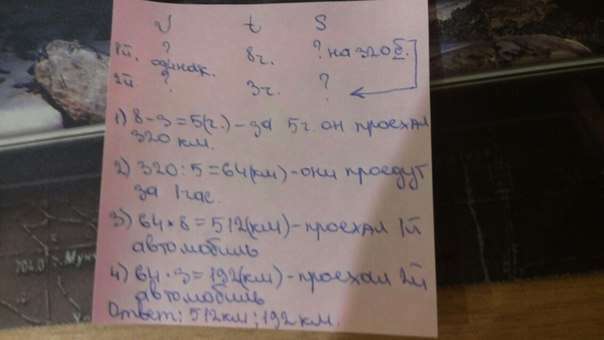 V t S
1й. ? 8г. ? на 320б.
одинак.
2й ? 3г. ?
1) 8-3=5(г.) - за 5г. он проехал
320 км.
2) 320:5=64(км) - они проедут
за 1 час.
3) 64*8=512(км) - проехал 1й
автомобиль
4) 64·3=192(км) - проехал 2й
автомобиль
Ответ: 512км; 192км.